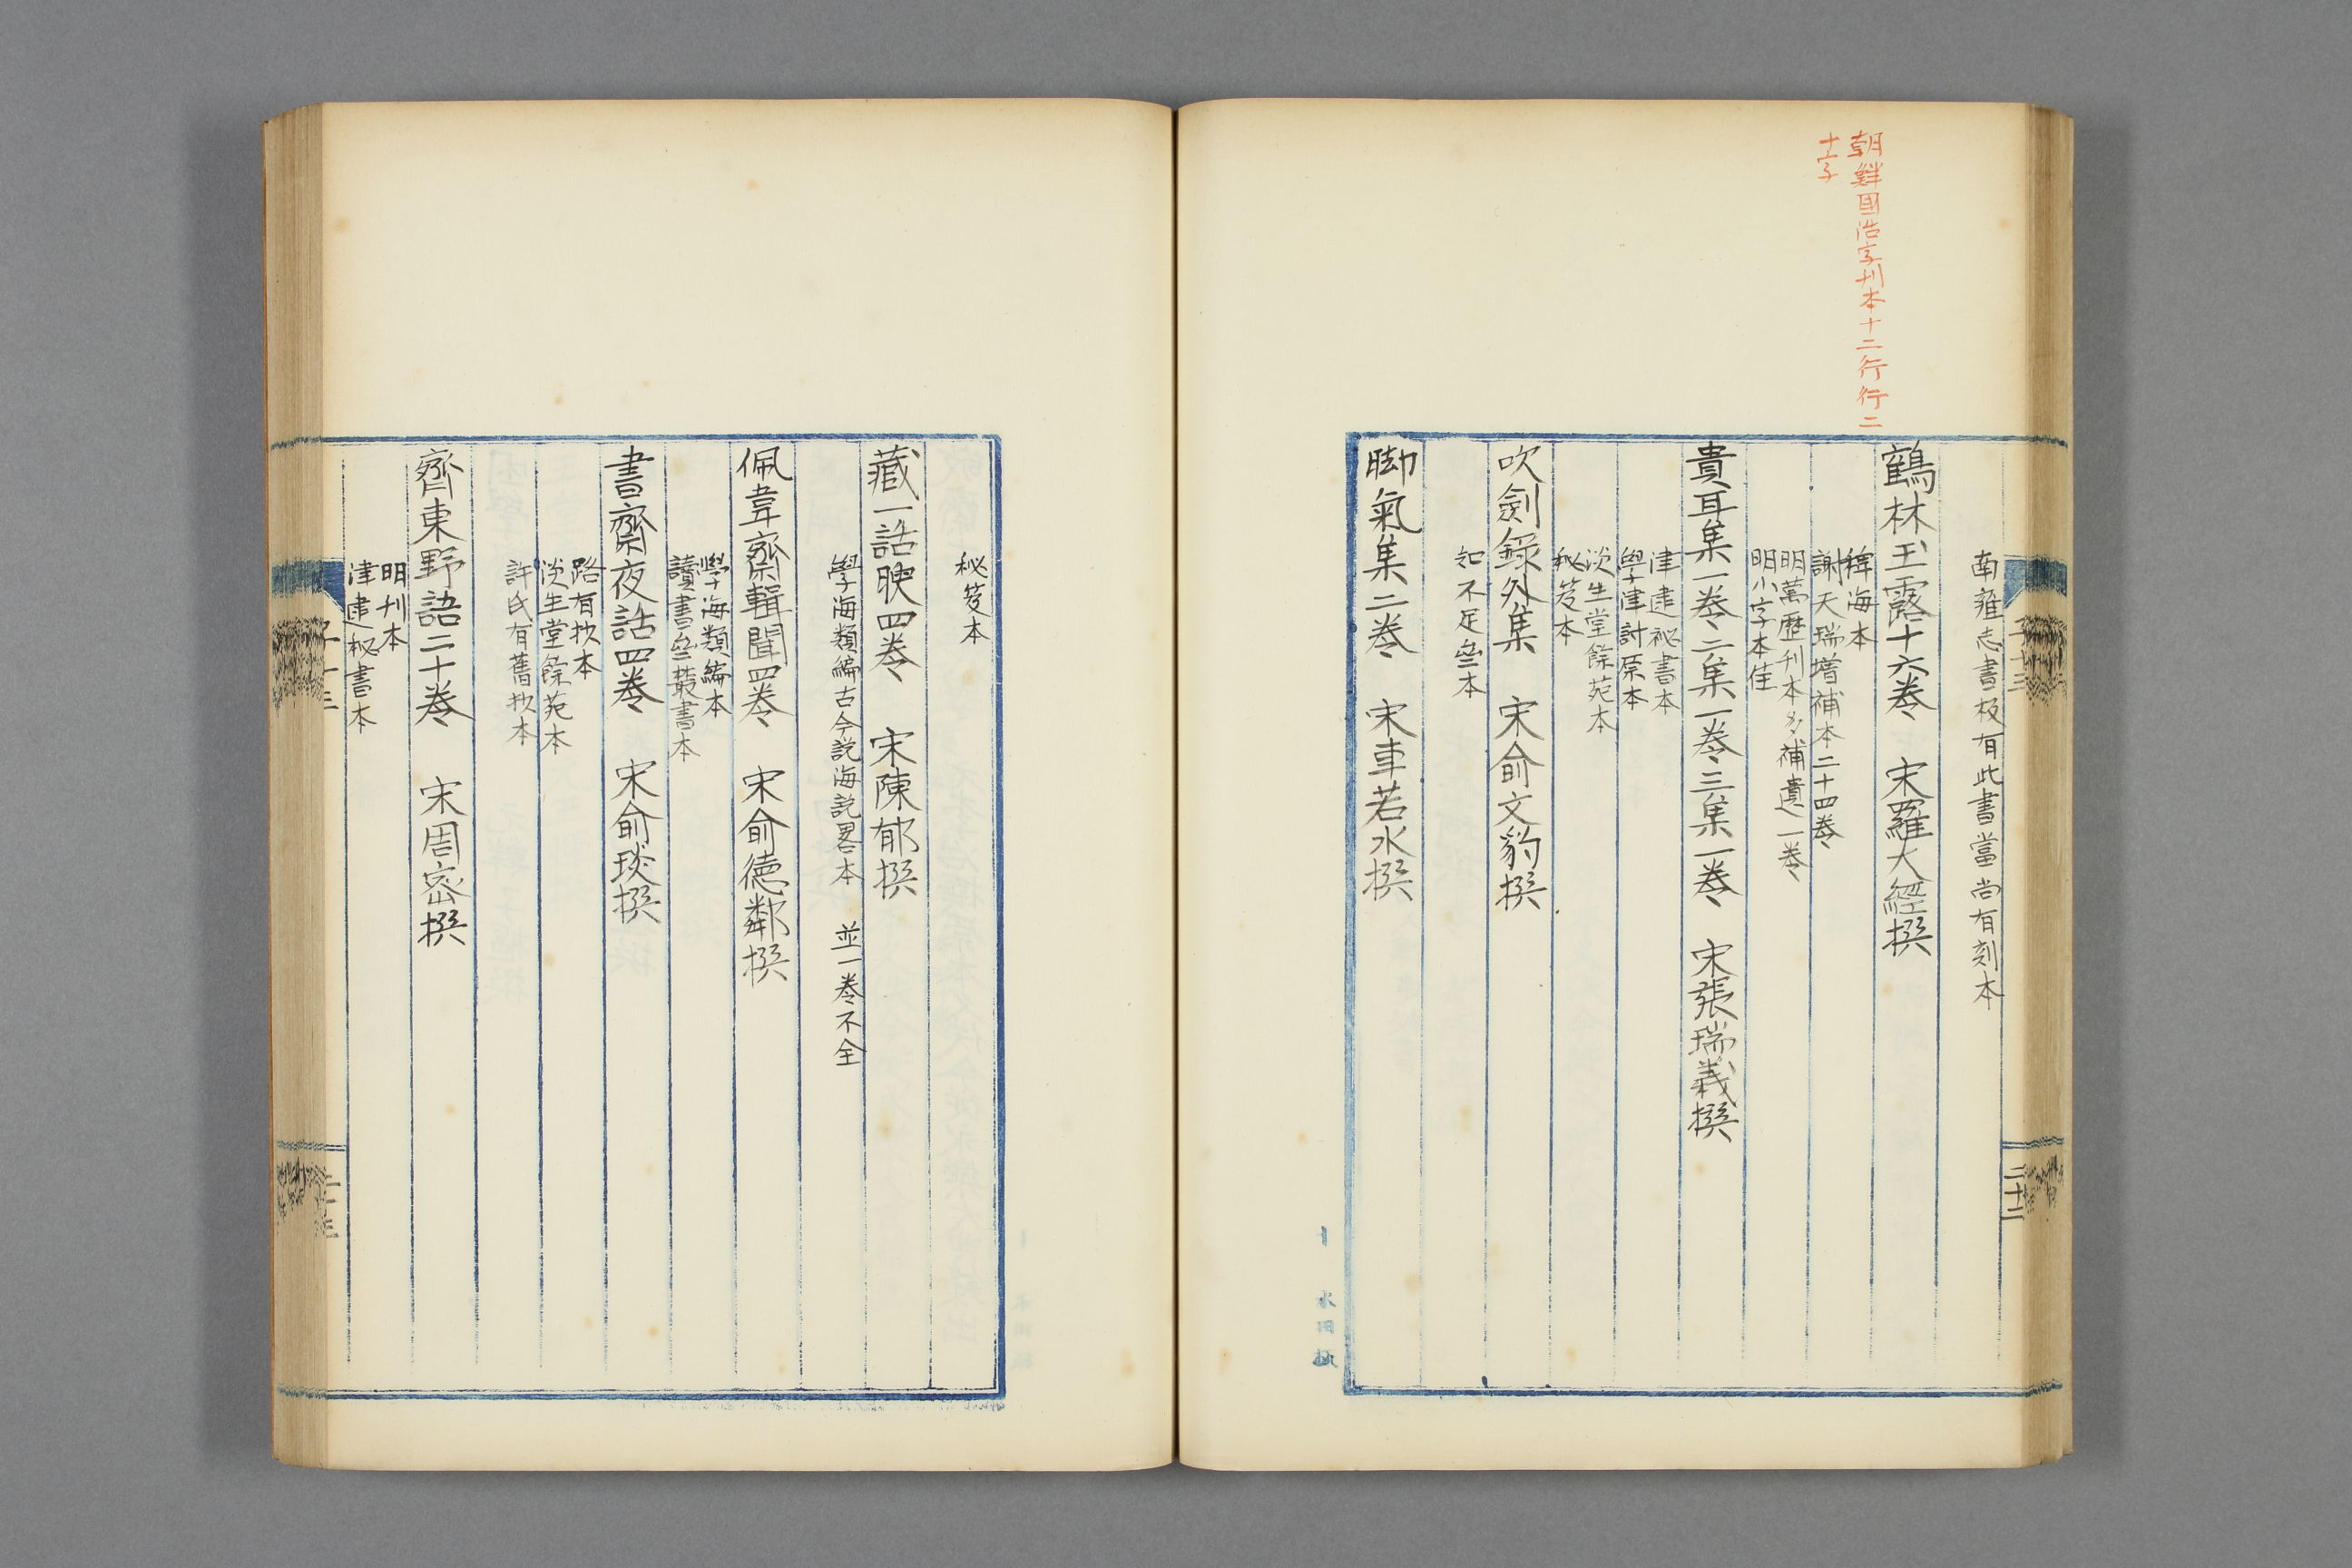 朝鮮國活字刊本十二行行二
十字
南雍志書板有此書當尚有刻本
鶴林玉露十六卷 宋羅大經撰
稗海本
謝天瑞增補本二十四卷
明萬歷刊本多補遺一卷
明小字本佳
貴耳集一卷二集一卷三集一卷 宋張瑞義撰
津逮祕書本
學津討原本
淡生堂餘苑本
秘笈本
吹劍錄外集 宋俞文豹撰
知不足齋本
腳氣集二卷 宋車若水撰
二十二
秘笈本
藏一話腴四卷 宋陳郁撰
學海類編古今說海說畧本 並一卷不全
佩韋齋輯聞四卷 宋俞德鄰撰
學海類編本
讀書齋叢書本
書齋夜話四卷 宋俞琰撰
路有抄本
淡生堂餘苑本
許氏有舊抄本
齊東野語二十卷 宋周密撰
明刊本
津逮秘書本
子十三